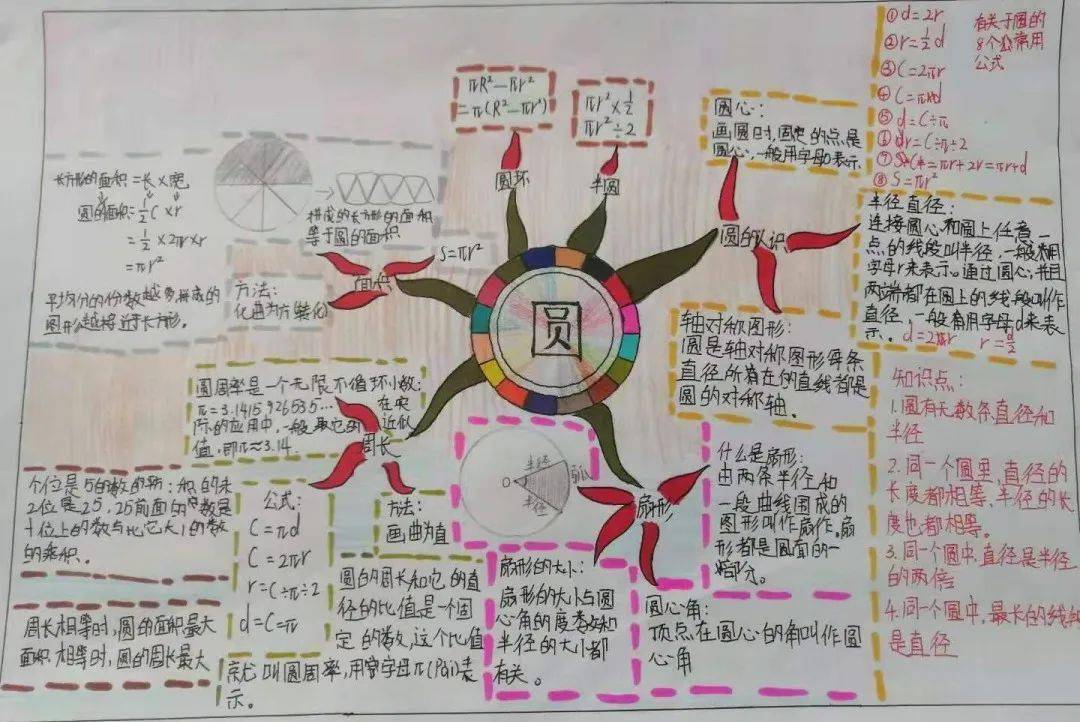 ①d=2r
②r=½d
③C=2πr
④C=πd
⑤d=C÷π
r=C÷π÷2
=πr+2r=πr+d
⑧S=πr²
有关于圆的
8个常用
公式
πR²-πr²
=π(R²-πr²)
圆环
πr²×½
πr²÷2
半圆
圆心:
画圆时,固定的点是
圆心,一般用字母o表示.
圆的认识
半径直径:
连接圆心和圆上任意一
点的线段叫半径,一般用
字母r来表示。通过圆心,并且
两端都在圆上的线段叫作
直径,一般用字母d来表
示。 d=2r r=d/2
轴对称图形:
圆是轴对称图形每条
直径所在的直线都是
圆的对称轴.
长方形的面积=长×宽
圆的面积=½C×r
=½×2πr×r
=πr²
平均分的份数越多,拼成的
图形越接近于长方形.
拼成的长方形的面积
等于圆的面积
S=πr²
面积
方法:
化曲为方(转化)
圆
圆周率是一个无限不循环小数:
π=3.1415926535... 在实
际的应用中,一般取它的 近似
值,即π≈3.14.
周长
个位是5的数的
2位是25,25前面的数是
十位上的数与比它大1的数
的乘积.
公式:
C=πd
C=2πr
r=C÷π÷2
d=C=π
方法:
画曲为值
圆的周长和它的直
径的比值是一个固
定的数,这个比值
就叫圆周率,用字母π(Pài)表
示。
周长相等时,圆的面积最大
面积相等时,圆的周长最大
半径
弧
O
半径
扇形
什么是扇形:
由两条半径和
一段曲线围成的
图形叫作扇作.扇
形都是圆面的一
部分。
扇形的大小:
扇形的大小与圆
心角的度和
半径的大小都
有关。
圆心角:
顶点在圆心的角叫作圆
心角
知识点:
1.圆有无数条直径和
半径
2.同一个圆里,直径的
长度都相等,半径的长
度也都相等.
3.同一个圆中,直径是半径
的两倍
4.同一个圆中,最长的线
是直径